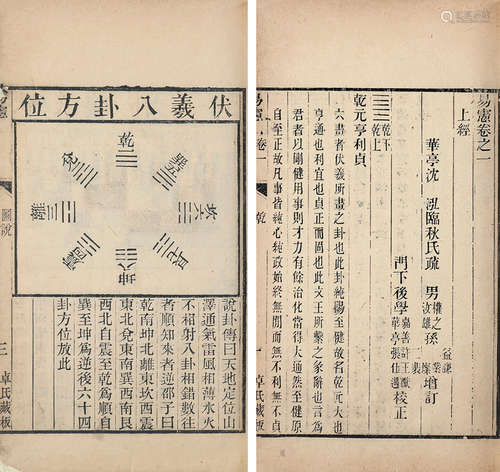 易憲卷之一
上經
華亭沈 泓臨秋氏疏 男 權之 汝雄 孫 增訂
門下後學 嘉善許王 華亭張仕遇 校正
乾下
乾上
乾元亨利貞
六畫者伏羲所畫之卦也此卦純陽至健故名乾元大也
亨通也利宜也貞正而固也此文王所繫之彖辭也言為
君者以剛健用事則才力有餘治化當得大通然至健原
自至正故凡事皆純心純政始終無間而無不利無不貞
易憲 卷一
乾
一
卓氏藏板
伏羲八卦方位
乾一
兌二
離三
震四
巽五
坎六
艮七
坤八
說卦傳曰天地定位山
澤通氣雷風相薄水火
不相射八卦相錯數往
者順知來者逆邵子曰
乾南坤北離東坎西震
東北兌東南巽西南艮
西北自震至乾爲順自
巽至坤爲逆後六十四
卦方位放此
圖說
三
卓氏藏板